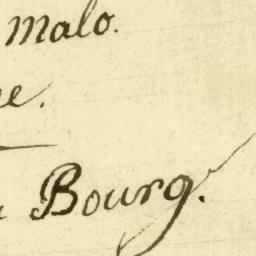 Malo.
Bourg.